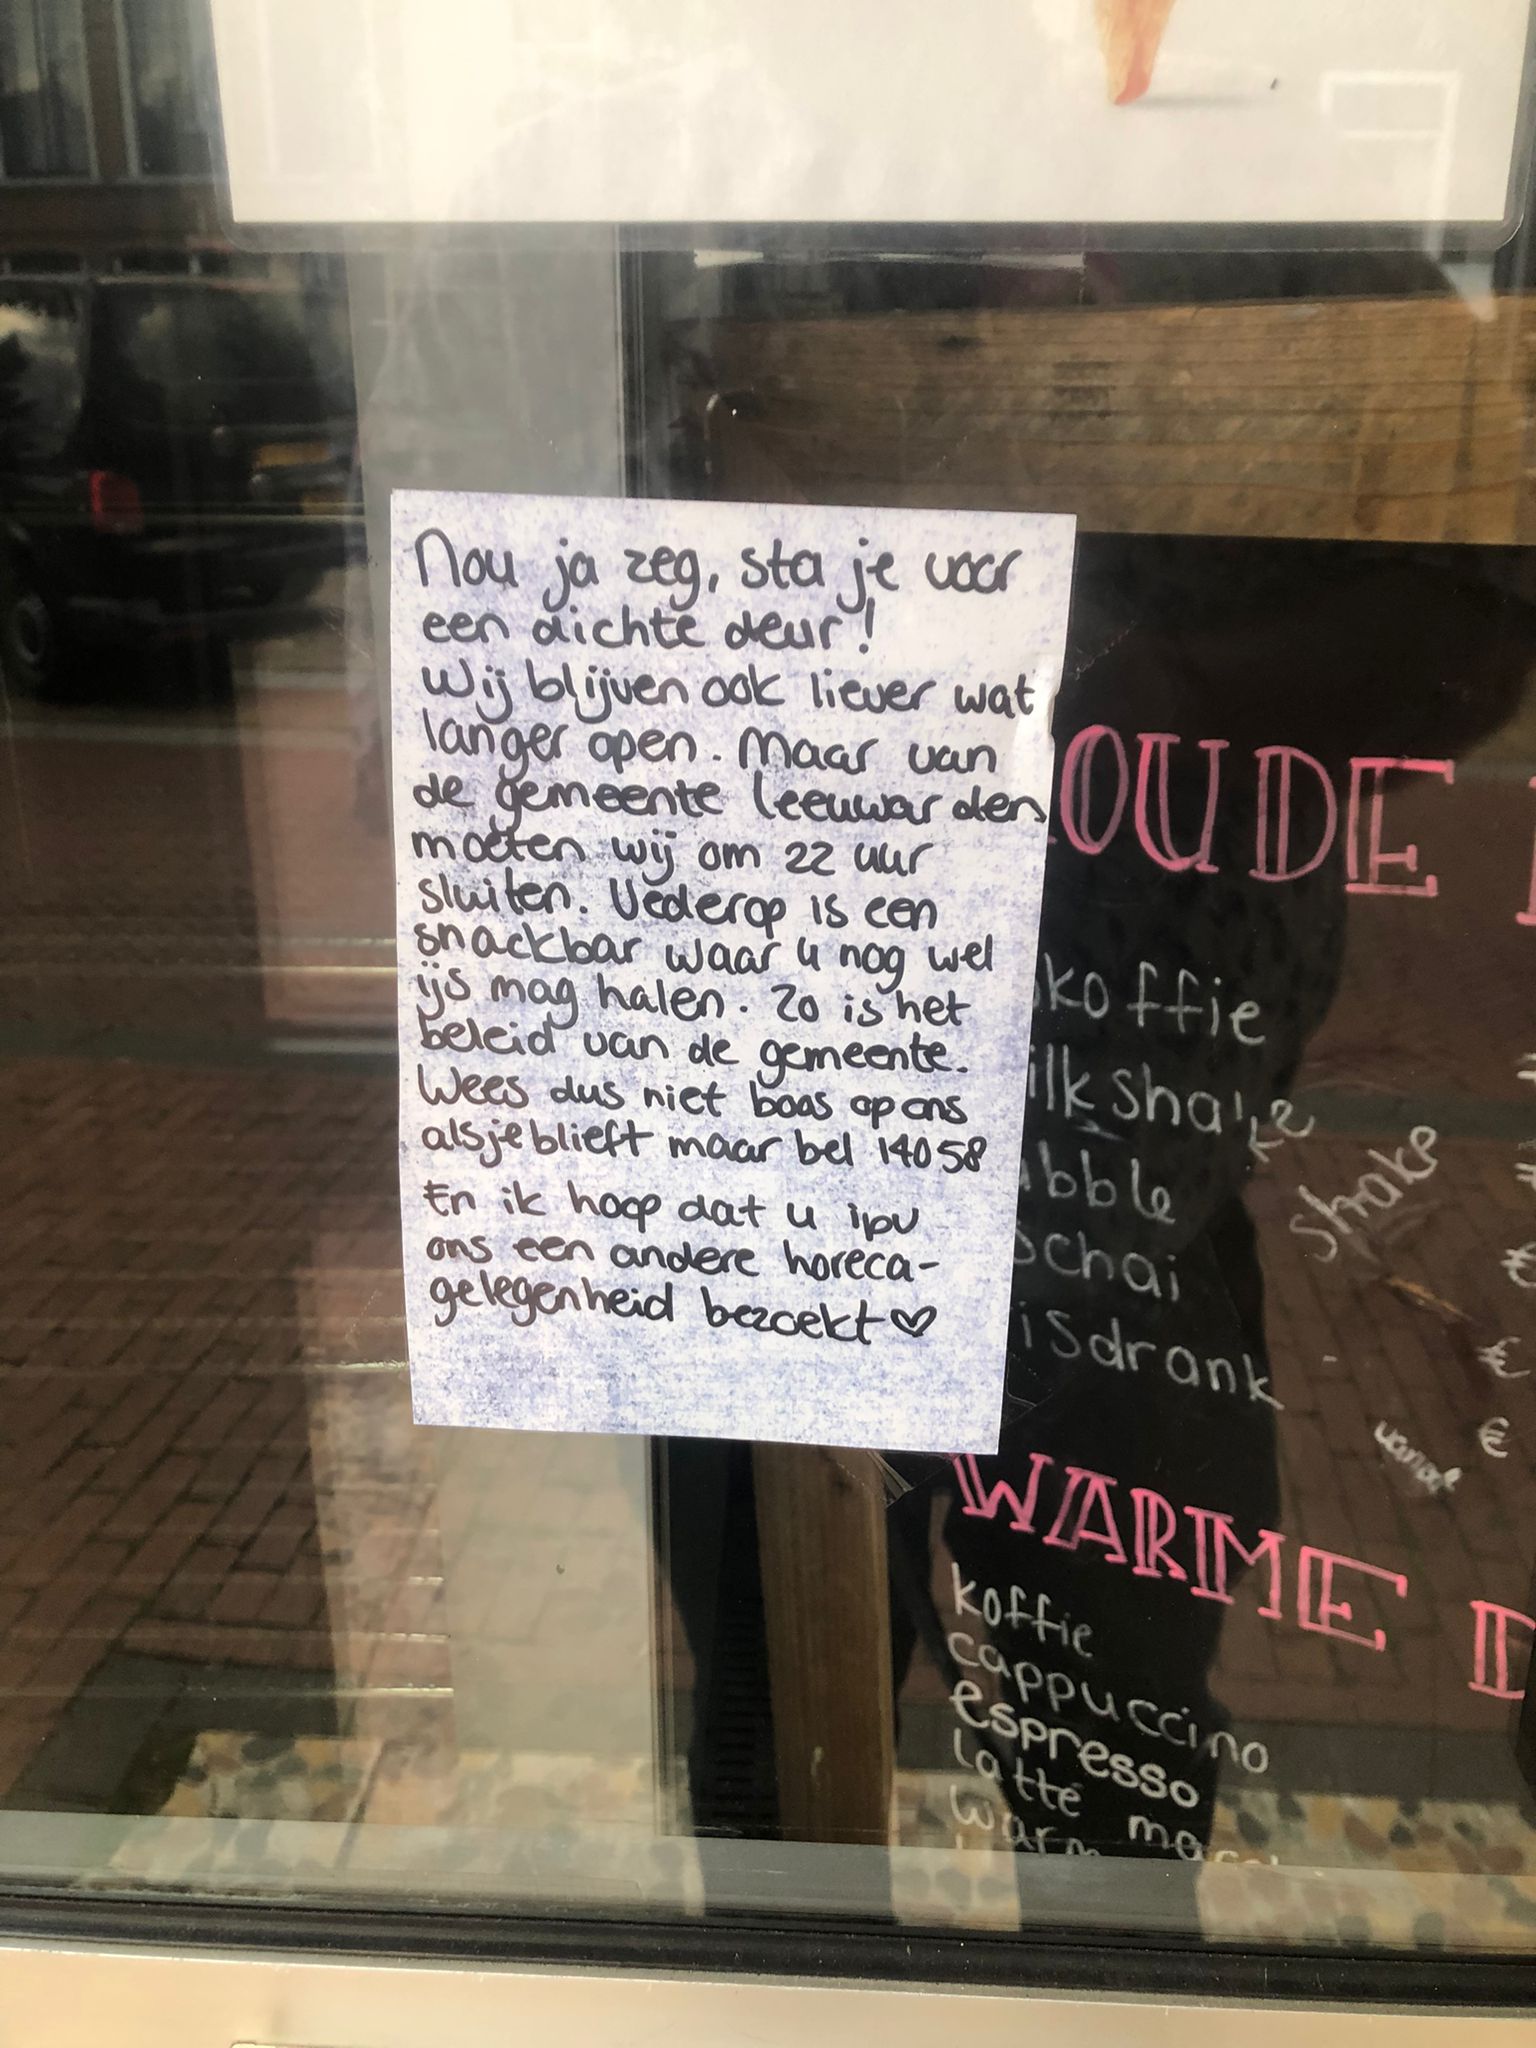 Nou ja zeg, sta je voor
een dichte deur!
Wij blijven ook liever wat
langer open. Maar van
de gemeente Leeuwarden
moeten wij om 22 uur
sluiten. Verderop is een
snackbar waar u nog wel
ijs mag halen. Zo is het
beleid van de gemeente.
Wees dus niet boos op ons
alsjeblieft maar bel 14058
En ik hoop dat u ipv
ons een andere horeca-
gelegenheid bezoekt ♡
OUDE
koffie
ilkshake
shake
bble
chai
isdrank
€
€
€
vanaf
WARME D
koffie
cappuccino
espresso
latte
warm